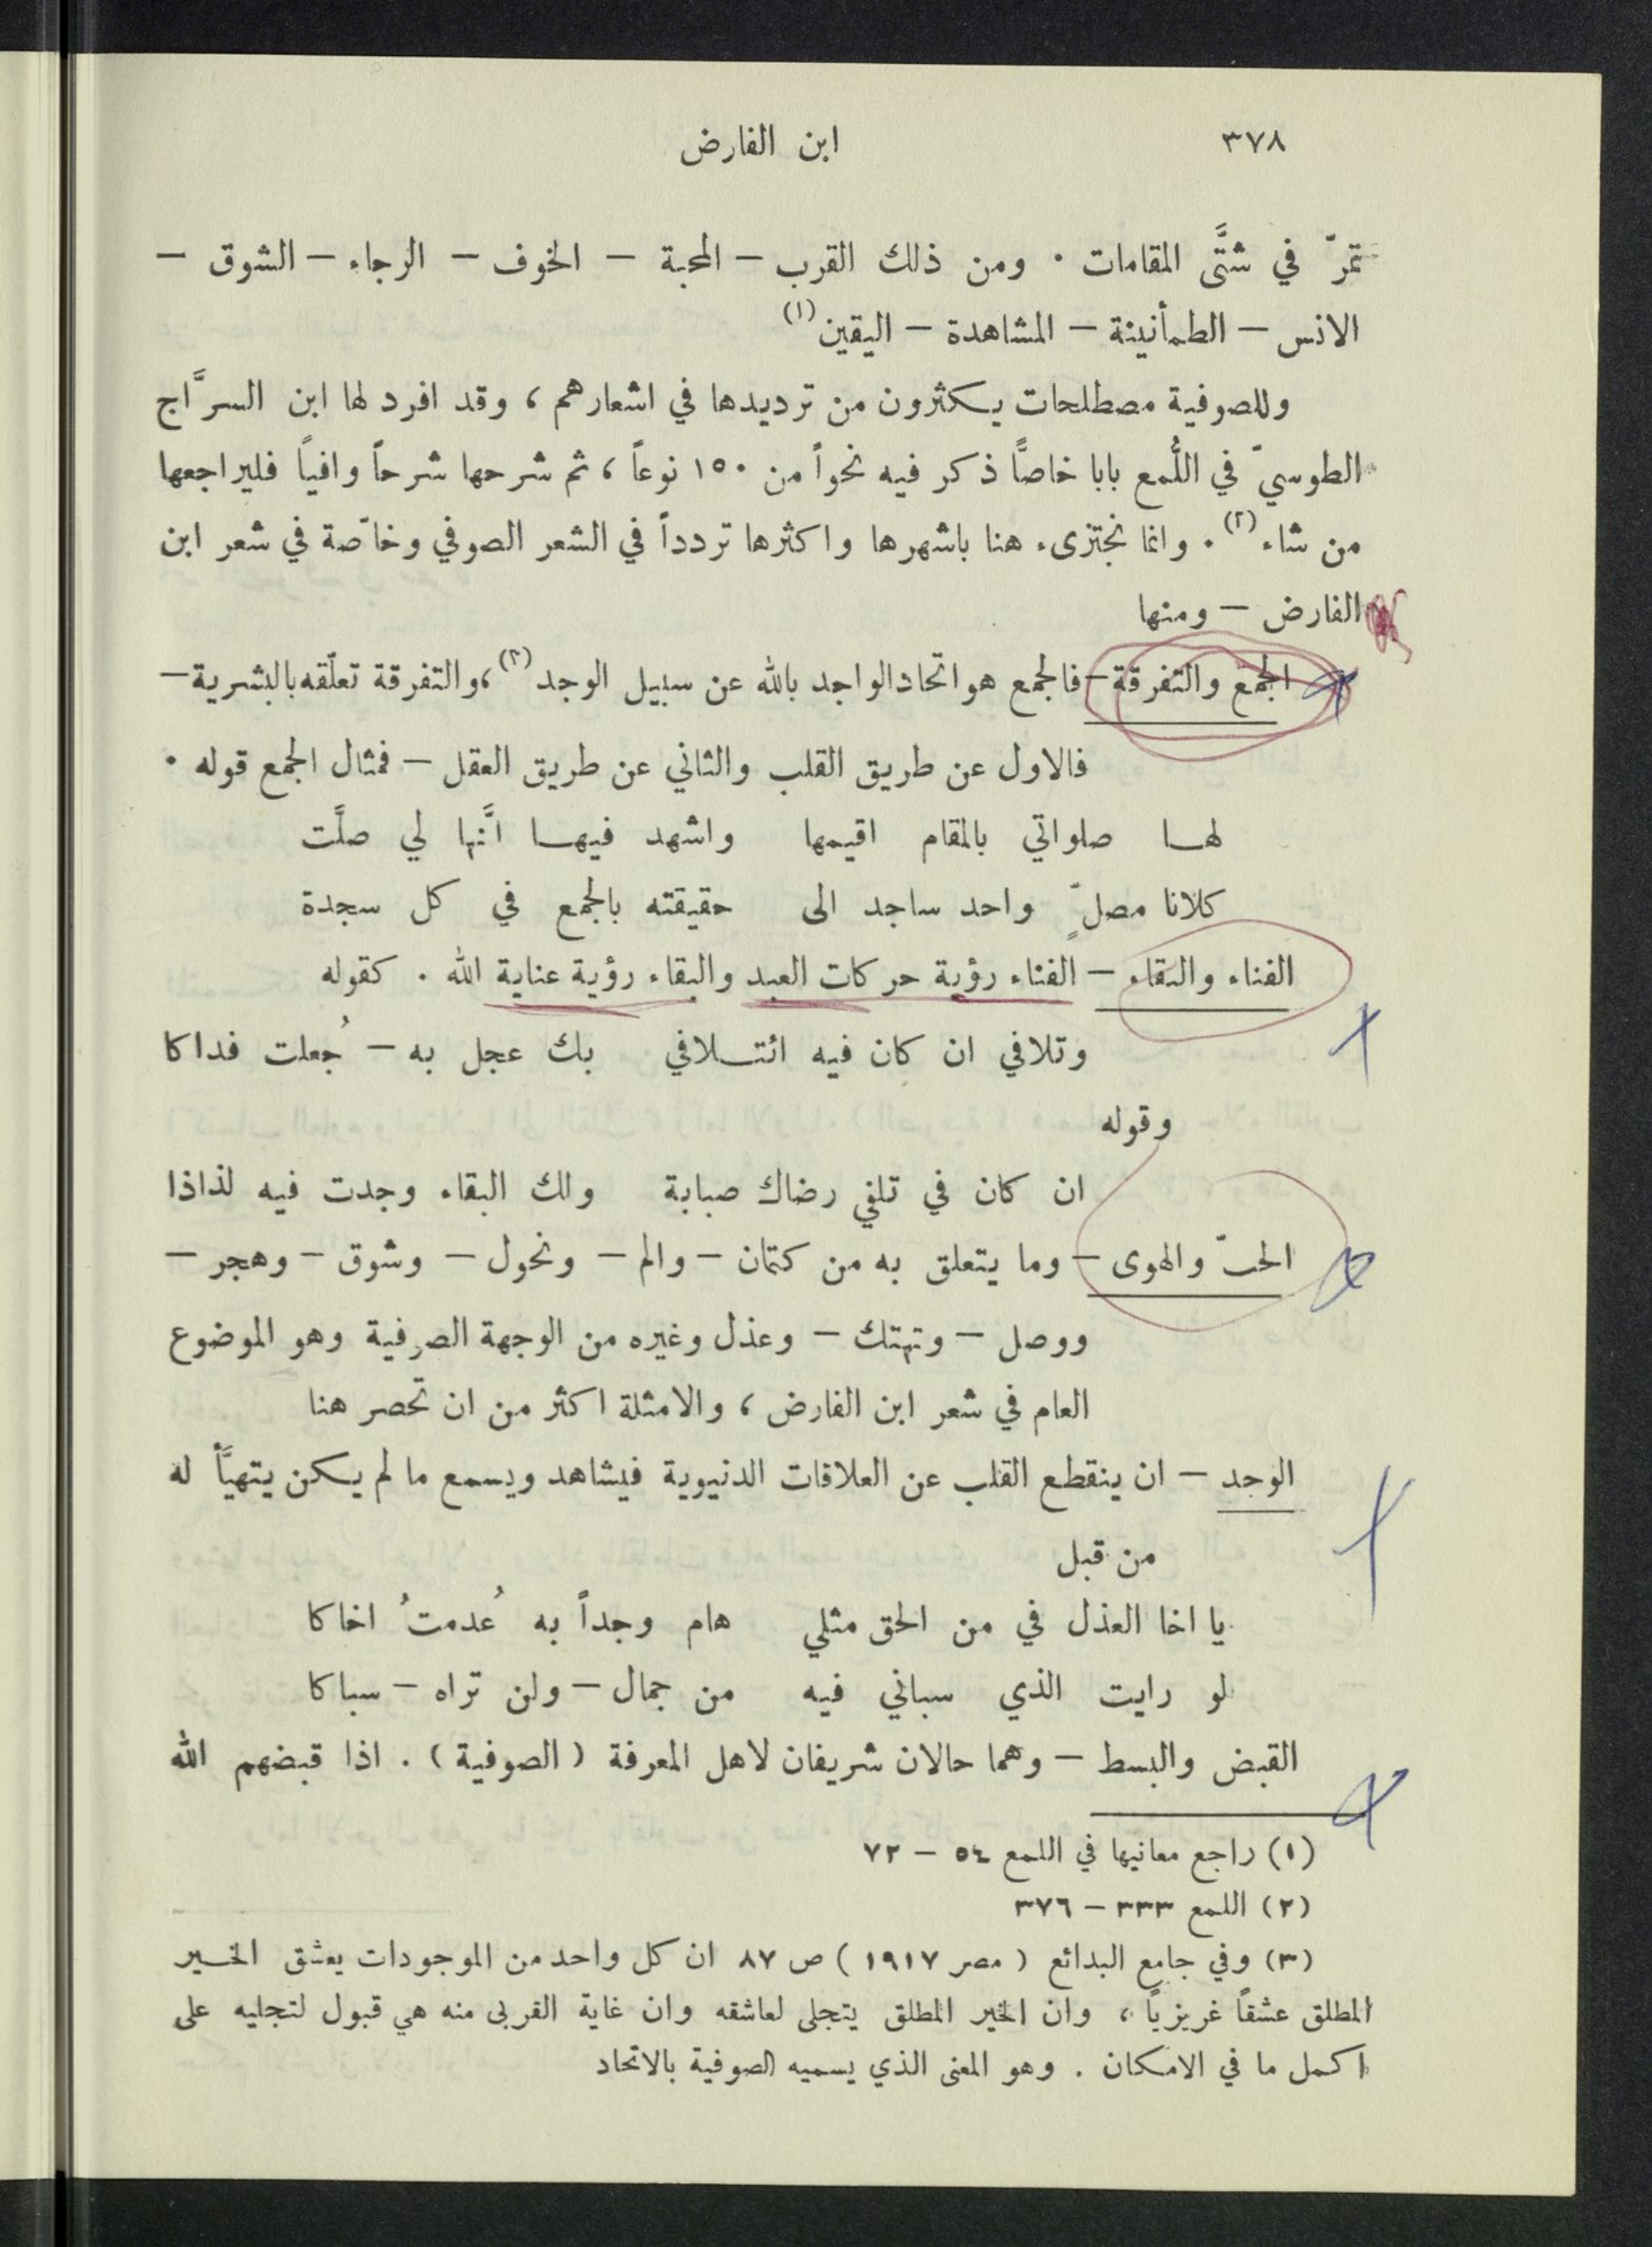 ٣٧٨ ابن الفارض
تمرّ في شتَّى المقامات . ومن ذلك القرب — المحبة — الخوف — الرجاء — الشوق —
الانس — الطمأنينة — المشاهدة — اليقين (١)
وللصوفية مصطلحات يكثرون من ترديدها في اشعارهم ، وقد افرد لها ابن السرَّاج
الطوسيّ في اللُّمع بابا خاصًّا ذكر فيه نحواً من ١٥٠ نوعاً ، ثم شرحها شرحاً وافياً فليراجعها
من شاء (٢) . وانما نجتزىء هنا باشهرها واكثرها تردداً في الشعر الصوفي وخاصّة في شعر ابن
الفارض — ومنها
الجمع والتفرقة — فالجمع هو اتحاد الواجد بالله عن سبيل الوجد (٣) ، والتفرقة تعلّقه بالبشرية —
فالاول عن طريق القلب والثاني عن طريق العقل — فمثال الجمع قوله .
لها صلواتي بالمقام اقيمها واشهد فيها انَّها لي صلَّت
كلانا مصلٍّ واحد ساجد الى حقيقته بالجمع في كل سجدة
الفناء والبقاء — الفناء رؤية حركات العبد والبقاء رؤية عناية الله . كقوله
وتلافي ان كان فيه ائتلافي بك عجل به — جُعلت فداكا
وقوله
ان كان في تلفي رضاك صبابة ولك البقاء وجدت فيه لذاذا
الحبّ والهوى — وما يتعلق به من كتمان — والم — ونحول — وشوق — وهجر —
ووصل — وتهتك — وعذل وغيره من الوجهة الصوفية وهو الموضوع
العام في شعر ابن الفارض ، والامثلة اكثر من ان تحصر هنا
الوجد — ان ينقطع القلب عن العلاقات الدنيوية فيشاهد ويسمع ما لم يكن يتهيَّأ له
من قبل
يا اخا العذل في من الحق مثلي هام وجداً به عُدمتُ اخاكا
لو رايت الذي سباني فيه من جمال — ولن تراه — سباكا
القبض والبسط — وهما حالان شريفان لاهل المعرفة ( الصوفية ) . اذا قبضهم الله
(١) راجع معانيها في اللمع ٥٤ — ٧٢
(٢) اللمع ٣٣٣ — ٣٧٦
(٣) وفي جامع البدائع ( مصر ١٩١٧ ) ص ٨٧ ان كل واحد من الموجودات يعشق الخير
المطلق عشقاً غريزياً ، وان الخير المطلق يتجلى لعاشقه وان غاية القربى منه هي قبول لتجليه على
اكمل ما في الامكان . وهو المعنى الذي يسميه الصوفية بالاتحاد